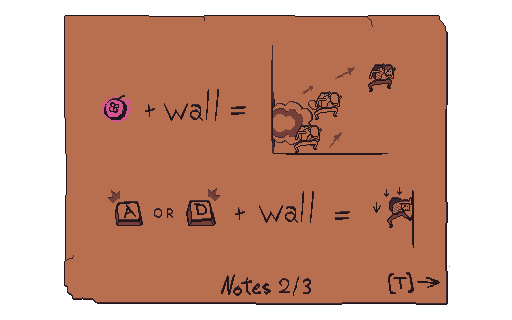 + wall =
A OR D + wall =
Notes 2/3
[T]→